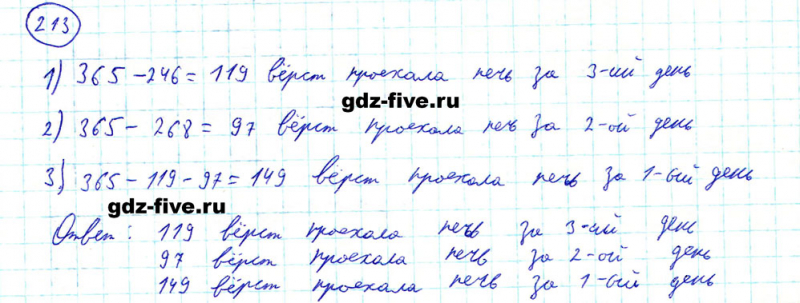 213
1) 365 - 246 = 119 вёрст проехала печь за 3-ий день
gdz-five.ru
2) 365 - 268 = 97 вёрст проехала печь за 2-ой день
3) 365 - 119 - 97 = 149 вёрст проехала печь за 1-ый день
gdz-five.ru
Ответ: 119 вёрст проехала печь за 3-ий день
97 вёрст проехала печь за 2-ой день
149 вёрст проехала печь за 1-ый день